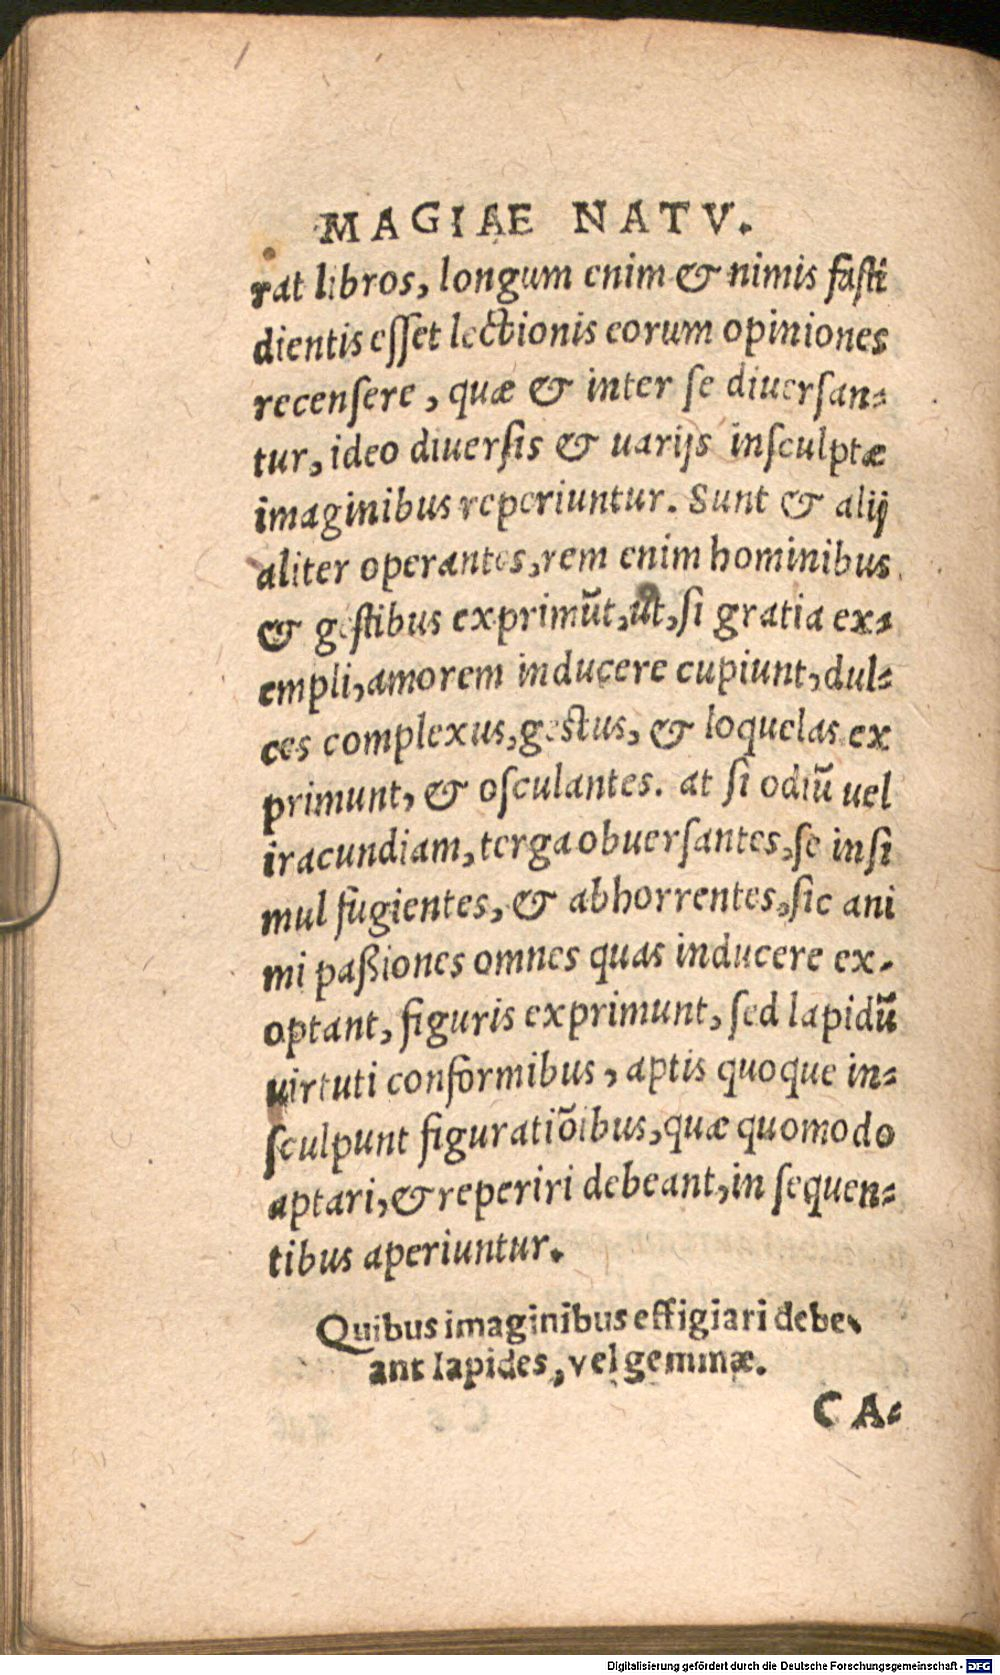 MAGIAE NATV.
rat libros, longum enim & nimis fasti
dientis esset lectionis eorum opiniones
recensere, quæ & inter se diuersan-
tur, ideo diuersis & uarijs insculptæ
imaginibus reperiuntur. Sunt & alij
aliter operantes, rem enim hominibus
& gestibus exprimũt, ut, si gratia ex-
empli, amorem inducere cupiunt, dul-
ces complexus, gestus, & loquelas ex
primunt, & osculantes. at si odiũ uel
iracundiam, terga obuersantes, se insi
mul fugientes, & abhorrentes, sic ani
mi paßiones omnes quas inducere ex-
optant, figuris exprimunt, sed lapidũ
uirtuti conformibus, aptis quoque in-
sculpunt figuratiõibus, quæ quomodo
aptari, & reperiri debeant, in sequen-
tibus aperiuntur.
Quibus imaginibus effigiari debe-
ant lapides, vel gemmæ.
CA-
Digitalisierung gefördert durch die Deutsche Forschungsgemeinschaft - DFG